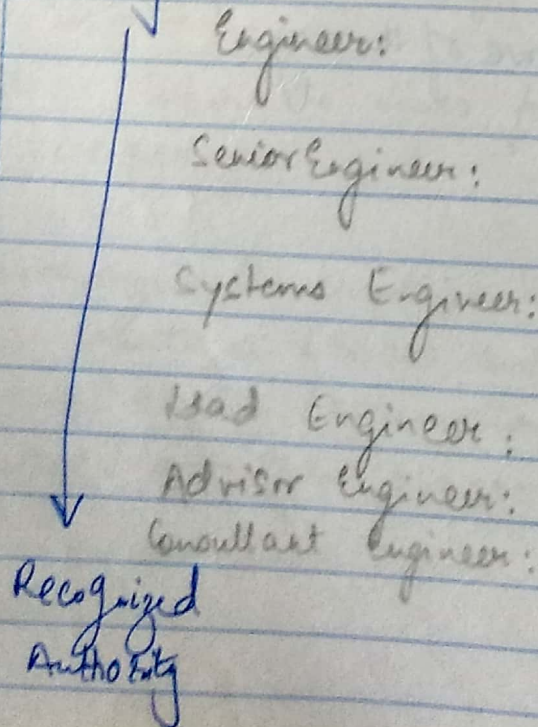 Engineer:
Senior Engineer:
Systems Engineer:
Lead Engineer:
Advisor Engineer:
Consultant Engineer:
Recognized
Authority